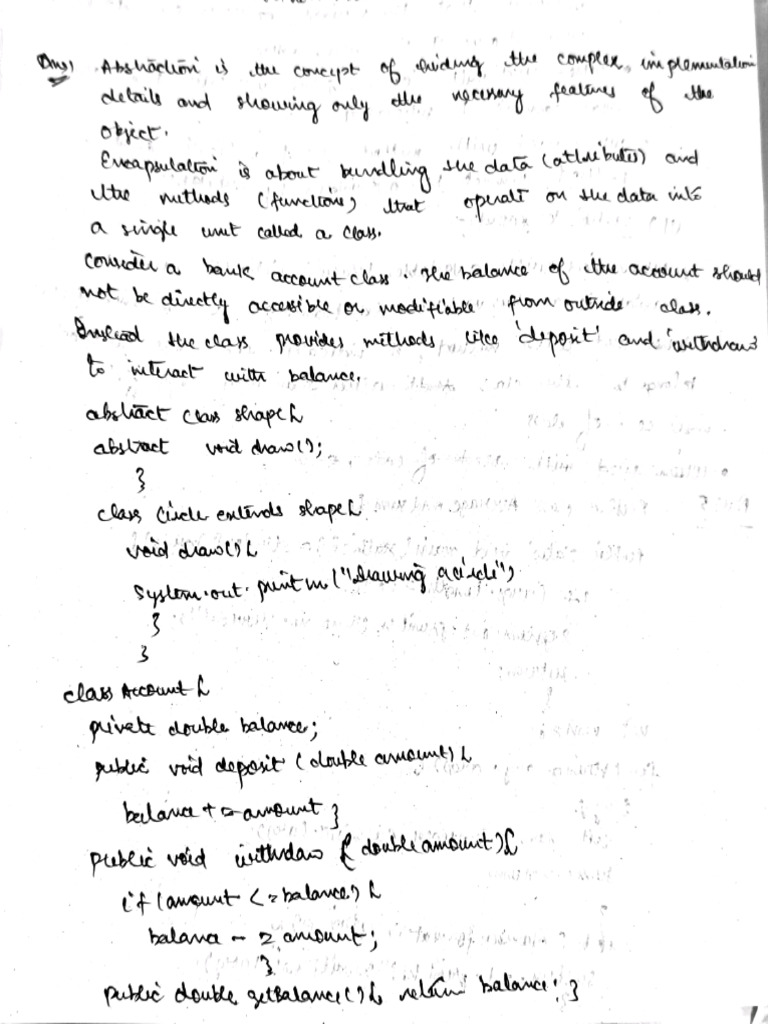 Ans1 Abstraction is the concept of hiding the complex implementation
details and showing only the necessary features of the
object.
Encapsulation is about bundling the data (attributes) and
the methods (functions) that operate on the data into
a single unit called a class.
Consider a bank account class. The balance of the account should
not be directly accessible or modifiable from outside class.
Instead the class provides methods like 'deposit' and 'withdraw'
to interact with balance.
abstract class shape {
abstract void draw();
}
class Circle extends shape {
void draw() {
System.out.println("Drawing a circle");
}
}
class Account {
private double balance;
public void deposit (double amount) {
balance += amount }
public void withdaw (double amount) {
if (amount <= balance) {
balance -= amount;
}
public double getBalance() { return balance; }